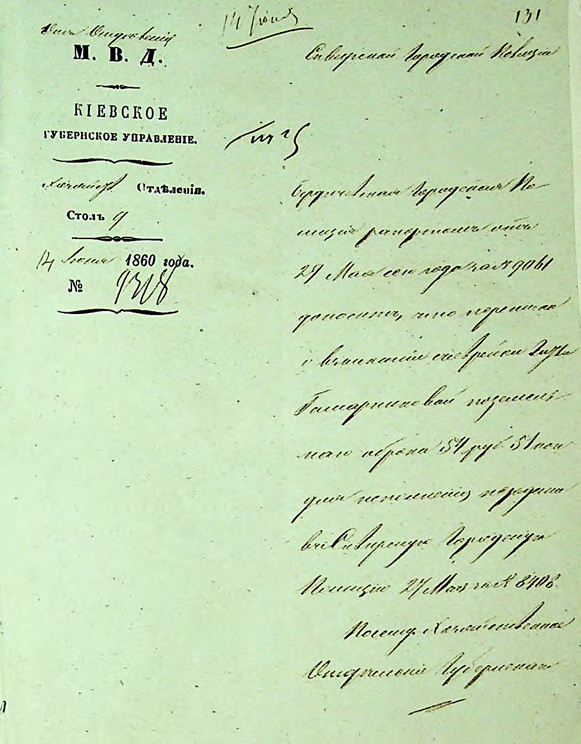 14 Іюня
131
М. В. Д.
КІЕВСКОЕ
ГУБЕРНСКОЕ УПРАВЛЕНІЕ.
Отдѣленія.
Столъ 9
14 Іюня 1860 года.
№ 9318
Сквирской Городской Полиціи
Бердичевская Городская По-
лиція рапортомъ отъ
29 Мая сего года за № 9061
доноситъ, что переписка
о взысканіи съ еврейки
поземель-
наго оброка 54 руб 51 коп
для исполненія передана
въ Сквирскую Городскую
Полицію 27 Мая за № 8408.
Посему Хозяйственное
Отдѣленіе Губернскаго